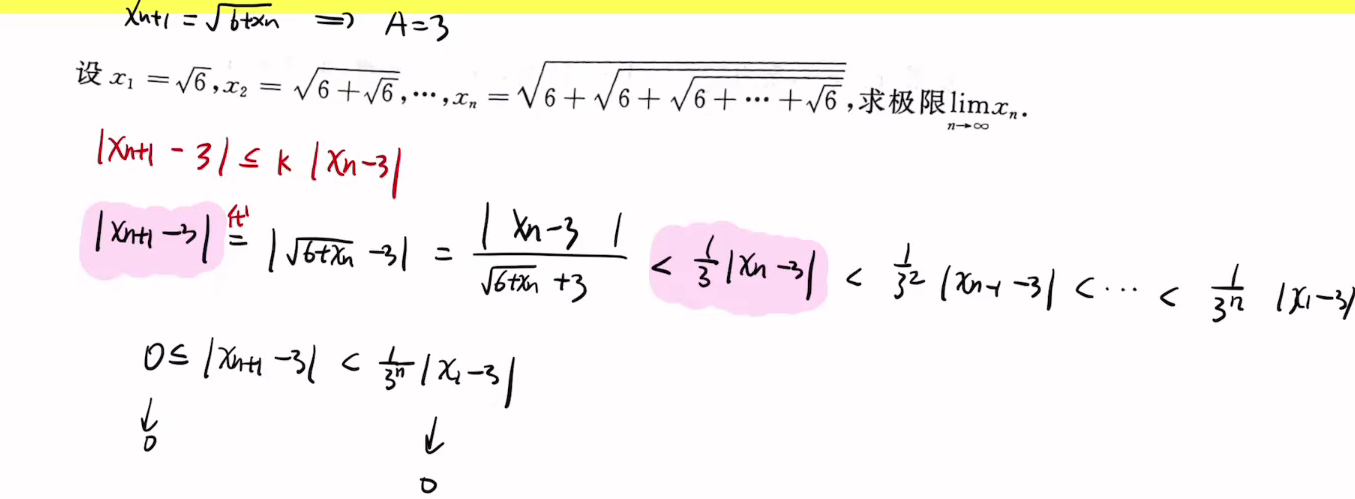 xn+1 = √(6+xn) ⟹ A=3
设 x₁ = √6, x₂ = √(6+√6), ⋯, xₙ = √(6+√(6+√(6+⋯+√6))), 求极限 lim_{n→∞} xₙ.
|xn+1 - 3| ≤ k |xn-3|
|xn+1 - 3| = |√(6+xn) - 3| = |xn-3| / (√(6+xn) + 3) < 1/3 |xn-3| < 1/3² |xn-1 - 3| < ⋯ < 1/3ⁿ |x₁-3|
0 ≤ |xn+1 - 3| < 1/3ⁿ |x₁-3|
↓ ↓
0 0